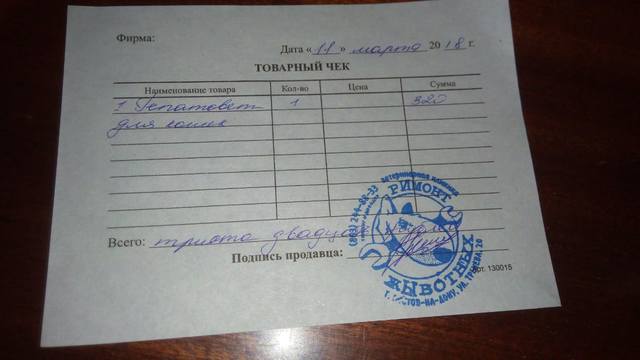 Фирма:
Дата « 11 » марта 2018 г.
ТОВАРНЫЙ ЧЕК
Наименование товара Кол-во Цена Сумма
1 Гепатовет 1 320
для кошек
Всего: триста двадцать
Подпись продавца:
ветеринарная клиника
РИМОНТ
ЖЫВОТНЫХ
Г. РОСТОВ-НА-ДОНУ, УЛ.
Арт. 130015